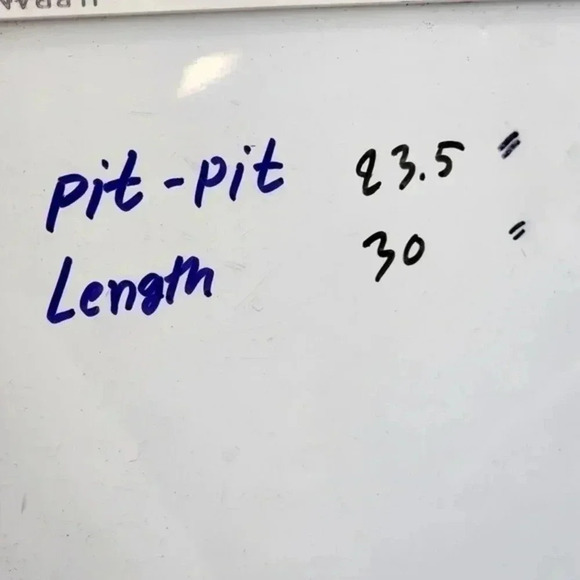 pit-pit 23.5 "
Length 30 "